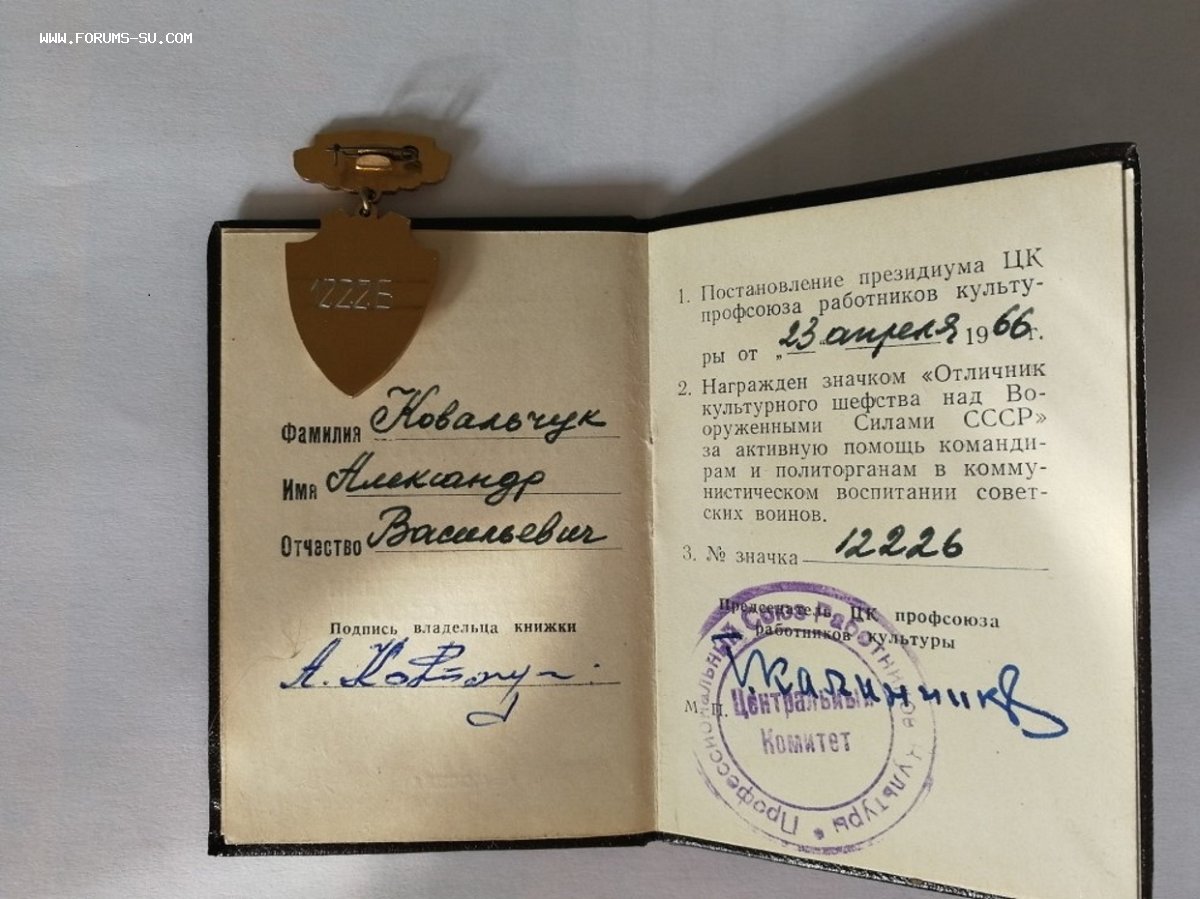 WWW.FORUMS-SU.COM
12226
Фамилия Ковальчук
Имя Александр
Отчество Васильевич
Подпись владельца книжки
А. Ковальчук
1. Постановление президиума ЦК
профсоюза работников культу-
ры от „23 апреля 1966 г.
2. Награжден значком «Отличник
культурного шефства над Во-
оруженными Силами СССР»
за активную помощь команди-
рам и политорганам в комму-
нистическом воспитании совет-
ских воинов.
3. № значка 12226
Председатель ЦК профсоюза
работников культуры
М. П.
Профессиональный Союз Работников Культуры
Центральный
Комитет